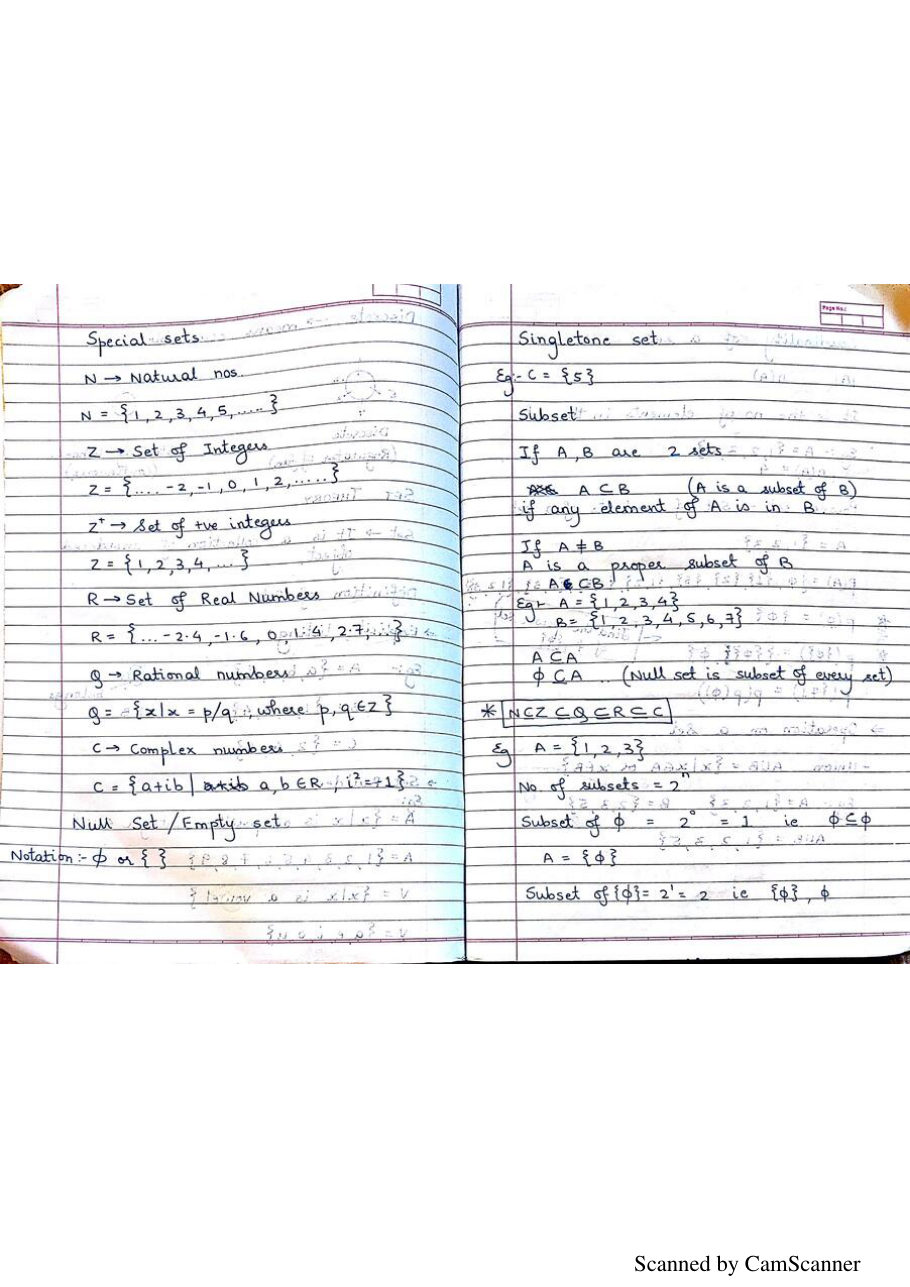 Special sets
N → Natural nos.
N = {1, 2, 3, 4, 5, ..... }
Z → Set of Integers
Z = {.... -2, -1, 0, 1, 2, ..... }
Z⁺ → Set of +ve integers
Z = {1, 2, 3, 4, ... }
R → Set of Real Numbers
R = {... -2.4, -1.6, 0, 1.4, 2.7, ...}
Q → Rational numbers
Q = {x|x = p/q, where p, q ∈ Z}
C → Complex numbers
C = {a+ib | a, b ∈ R, i² = -1}
Null Set / Empty set
Notation :- ϕ or { }
Page No.:
Singletone set
Eg:- C = {5}
Subset
If A, B are 2 sets
A ⊆ B (A is a subset of B)
if any element of A is in B
If A ≠ B
A is a proper subset of B
A ⊂ B
Eg:- A = {1, 2, 3, 4}
B = {1, 2, 3, 4, 5, 6, 7}
A ⊆ A
ϕ ⊆ A .. (Null set is subset of every set)
* N ⊆ Z ⊆ Q ⊆ R ⊆ C
Eg A = {1, 2, 3}
No. of subsets = 2ⁿ
Subset of ϕ = 2⁰ = 1 ie ϕ ⊆ ϕ
A = {ϕ}
Subset of {ϕ} = 2¹ = 2 ie {ϕ}, ϕ
Scanned by CamScanner